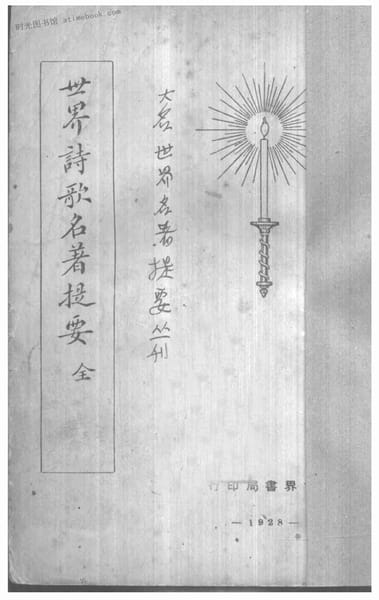 时光图书馆 atimebook.com
世界詩歌名著提要 全
大名世界名著提要丛刊
界書局印行
—1928—